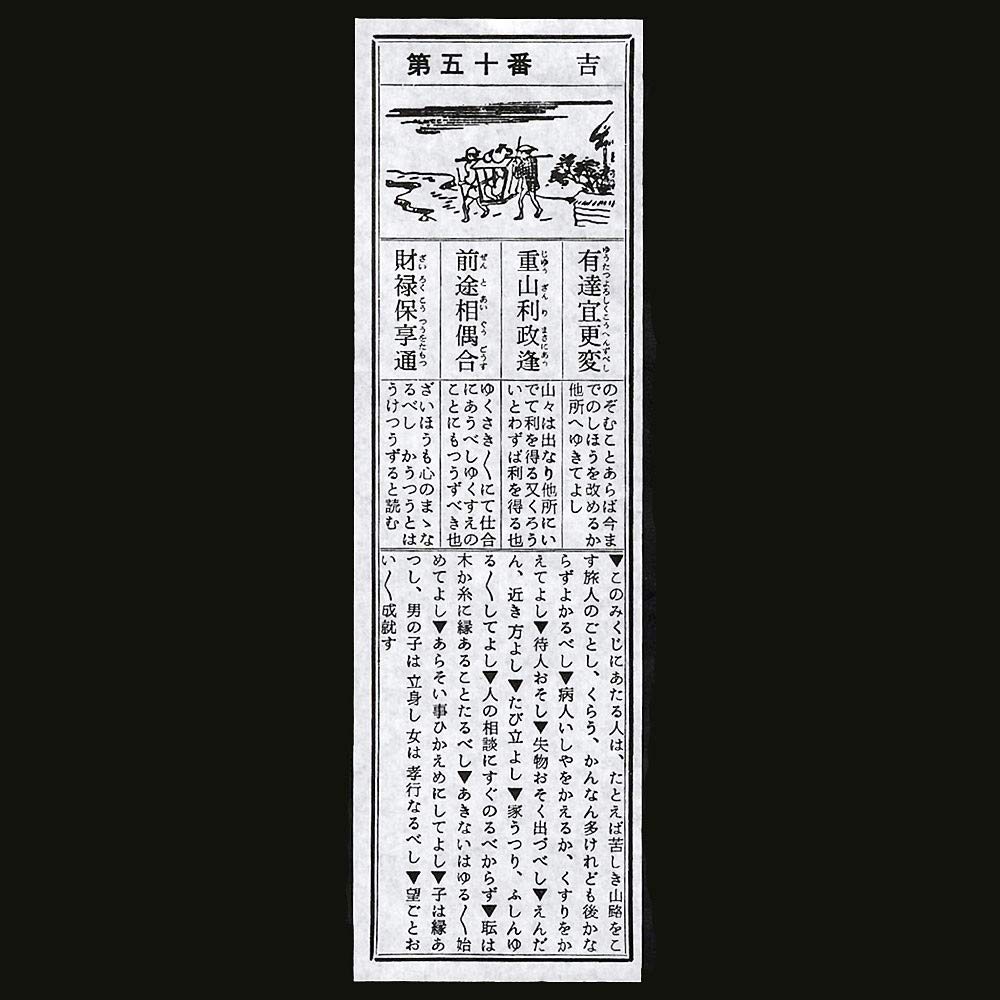 第五十番 吉
有達宜更変
ゆうたつよろしくこうへんずべし
重山利政逢
じゆう ざん り まさにあう
前途相偶合
ぜん と あい ぐう どうす
財禄保享通
ざい ろく とう つうをたもつ
のぞむことあらば今ま
でのしほうを改めるか
他所へゆきてよし
山々は出なり他所にい
でて利を得る又くろう
いとわずば利を得る也
ゆくさき〱にて仕合
にあうべしゆくすえの
ことにもつうずべき也
ざいほうも心のまゝな
るべし かうつうとは
うけつうずると読む
▼このみくじにあたる人は、たとえば苦しき山路をこ
す旅人のごとし、くらう、かんなん多けれども後かな
らずよかるべし▼病人いしやをかえるか、くすりをか
えてよし▼待人おそし▼失物おそく出づべし▼えんだ
ん、近き方よし▼たび立よし▼家うつり、ふしんゆ
る〱してよし▼人の相談にすぐのるべからず▼耘は
木か糸に縁あることたるべし▼あきないはゆる〱始
めてよし▼あらそい事ひかえめにしてよし▼子は縁あ
つし、男の子は立身し女は孝行なるべし▼望ごとお
い〱成就す